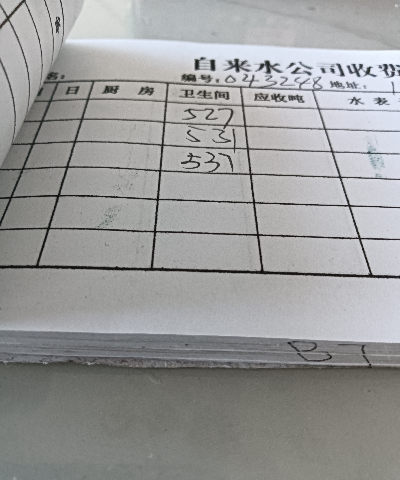 自来水公司收费
名: 编号: 043248 地址:
日 厨房 卫生间 应收吨 水表
527
531
537
B7